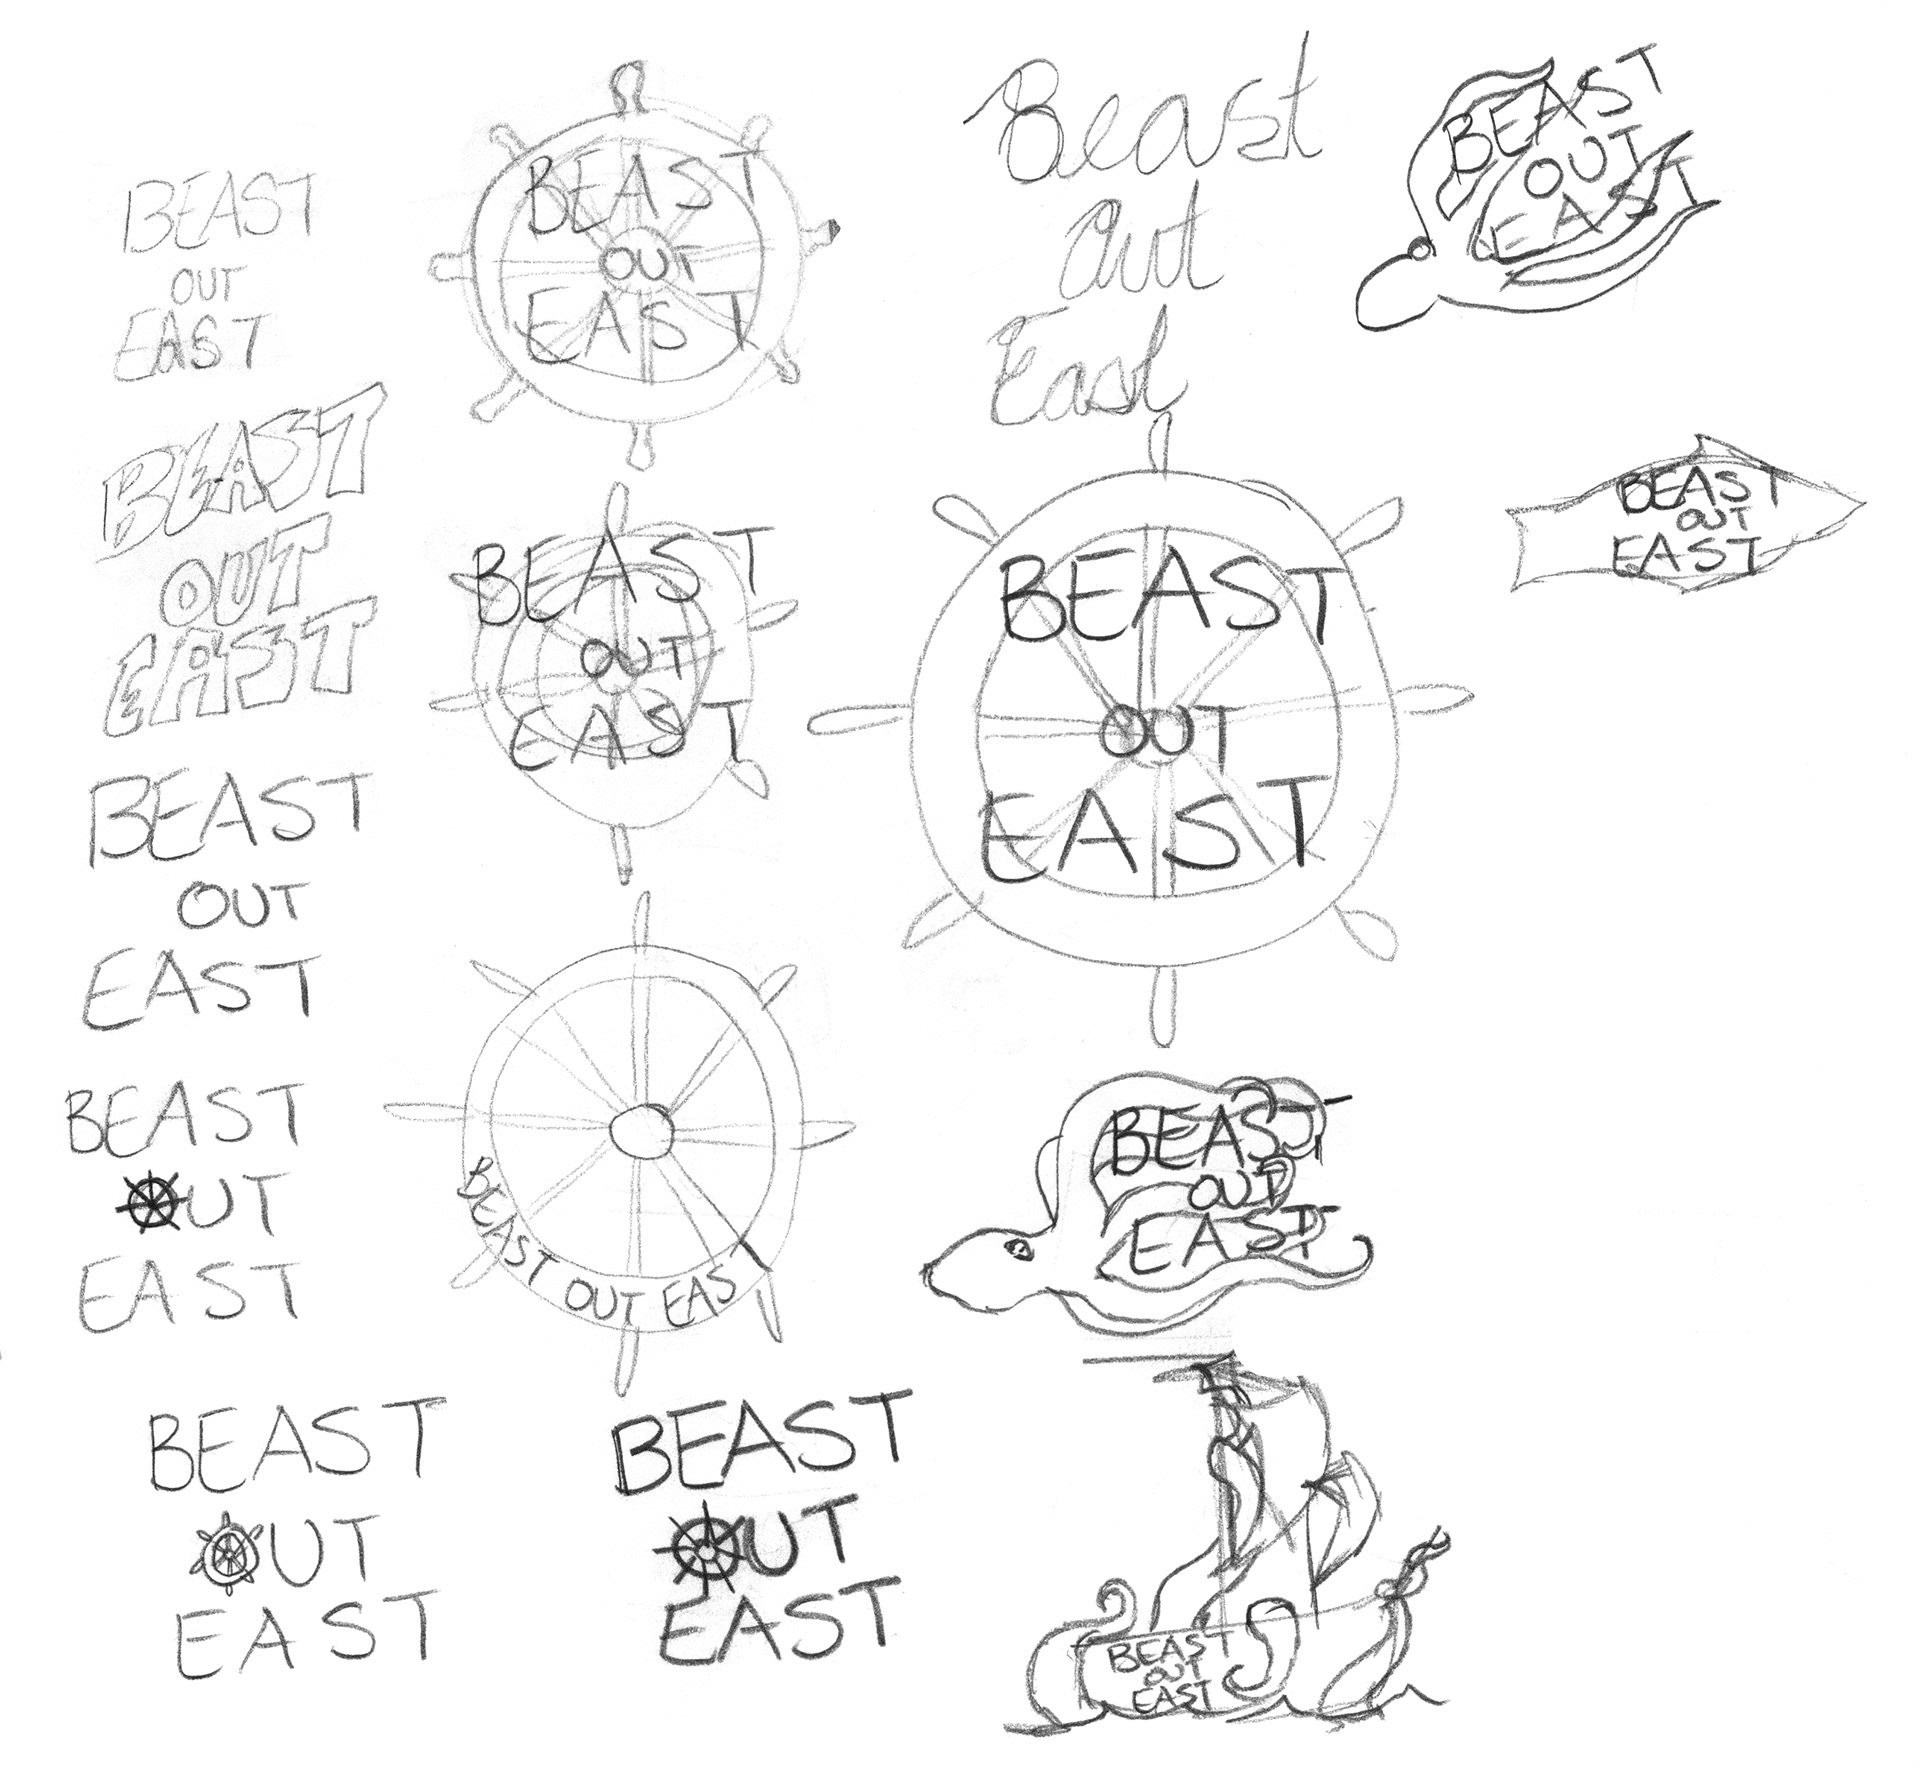 BEAST
OUT
EAST
BEAST
OUT
EAST
BEAST
OUT
EAST
BEAST
OUT
EAST
BEAST
OUT
EAST
BEAST
OUT
EAST
BEAST
OUT
EAST
BEAST OUT EAS
BEAST
OUT
EAST
Beast
Out
East
BEAST
OUT
EAST
BEAST
OUT
EAST
BEAST
OUT
EAST
BEAST
OUT
EAST
BEAST
OUT
EAST